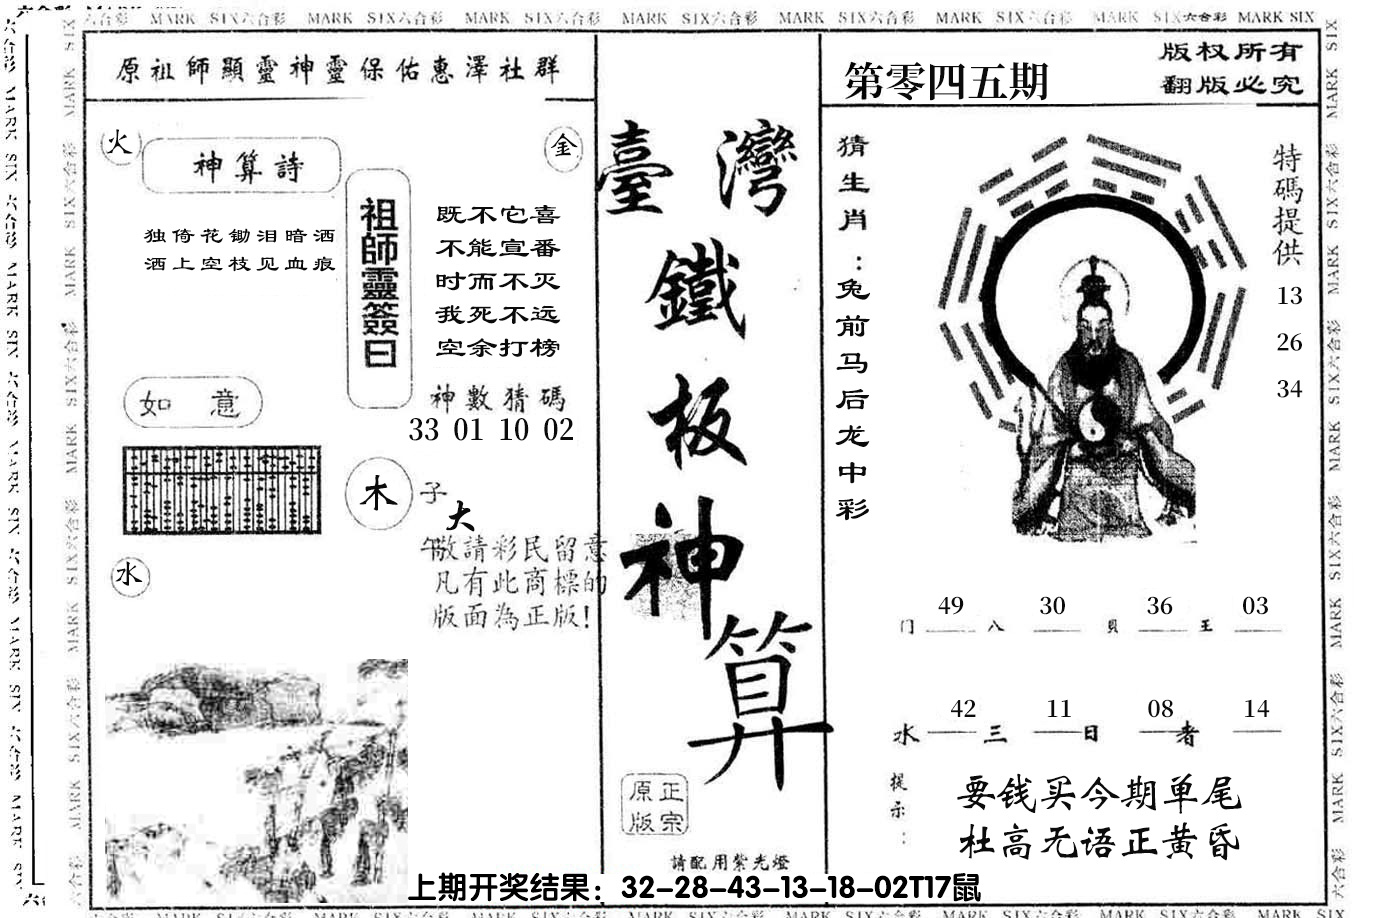 MARK SIX六合彩 MARK SIX六合彩 MARK SIX六合彩 MARK SIX六合彩 MARK SIX六合彩 MARK SIX六合彩 MARK SIX六合彩 MARK SIX
原祖師顯靈神靈保佑惠澤社群
火
神算詩
金
独倚花锄泪暗洒
洒上空枝见血痕
祖師靈簽曰
既不它喜
不能宣番
时而不灭
我死不远
空余打榜
神數猜碼
33 01 10 02
如意
木
子
大
午
敬請彩民留意
凡有此商標的
版面為正版!
水
臺灣
鐵
板
神
算
正宗
原版
請配用紫光燈
第零四五期
版权所有
翻版必究
猜生肖:兔前马后龙中彩
特碼提供
13
26
34
49 30 36 03
门 八 貝 王
42 11 08 14
水 三 日 者
提示:
要钱买今期单尾
杜高无语正黄昏
上期开奖结果：32-28-43-13-18-02T17鼠